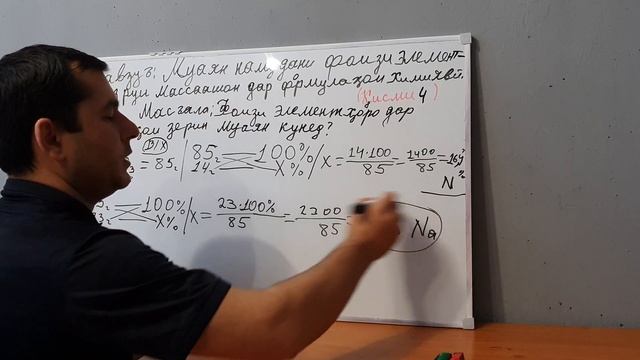 Муаян намудани фоизи элемент-
руи Массаашон дар формулаҳои химиявӣ.
(Қисми 4)
Масъала: Фоизи элементҳоро дар
зерин Муаян кунед?
= 85г | 85г 100% / X = 14·100/85 = 1400/85 =
14г X%
N
100% / X = 23·100%/85 = 2300/85
X%
Na